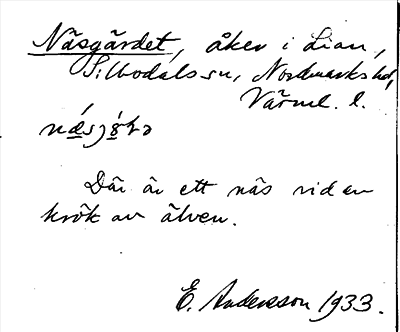 Näsgärdet, åker i Lian,
Silbodals sn, Nordmarks hd,
Värml. l.
Där är ett näs vid en
krök av älven.
E. Andersson 1933.